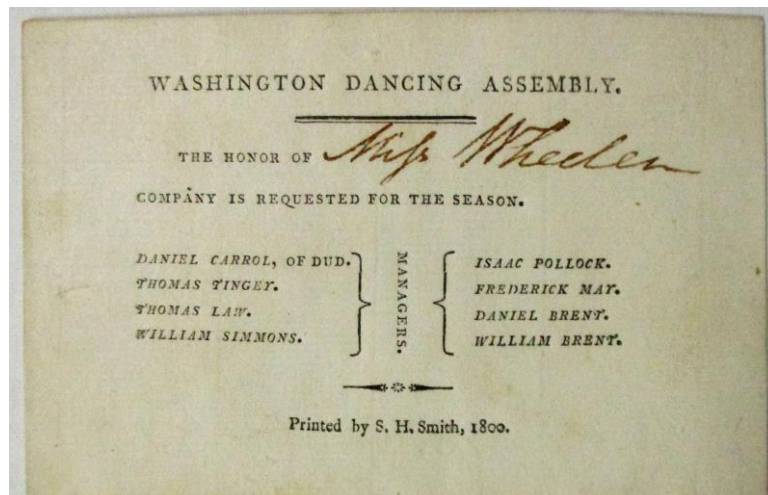 WASHINGTON DANCING ASSEMBLY.
THE HONOR OF Miss Wheelen
COMPANY IS REQUESTED FOR THE SEASON.
DANIEL CARROL, OF DUD.
THOMAS TINGEY.
THOMAS LAW.
WILLIAM SIMMONS.
MANAGERS.
ISAAC POLLOCK.
FREDERICK MAY.
DANIEL BRENT.
WILLIAM BRENT.
Printed by S. H. Smith, 1800.